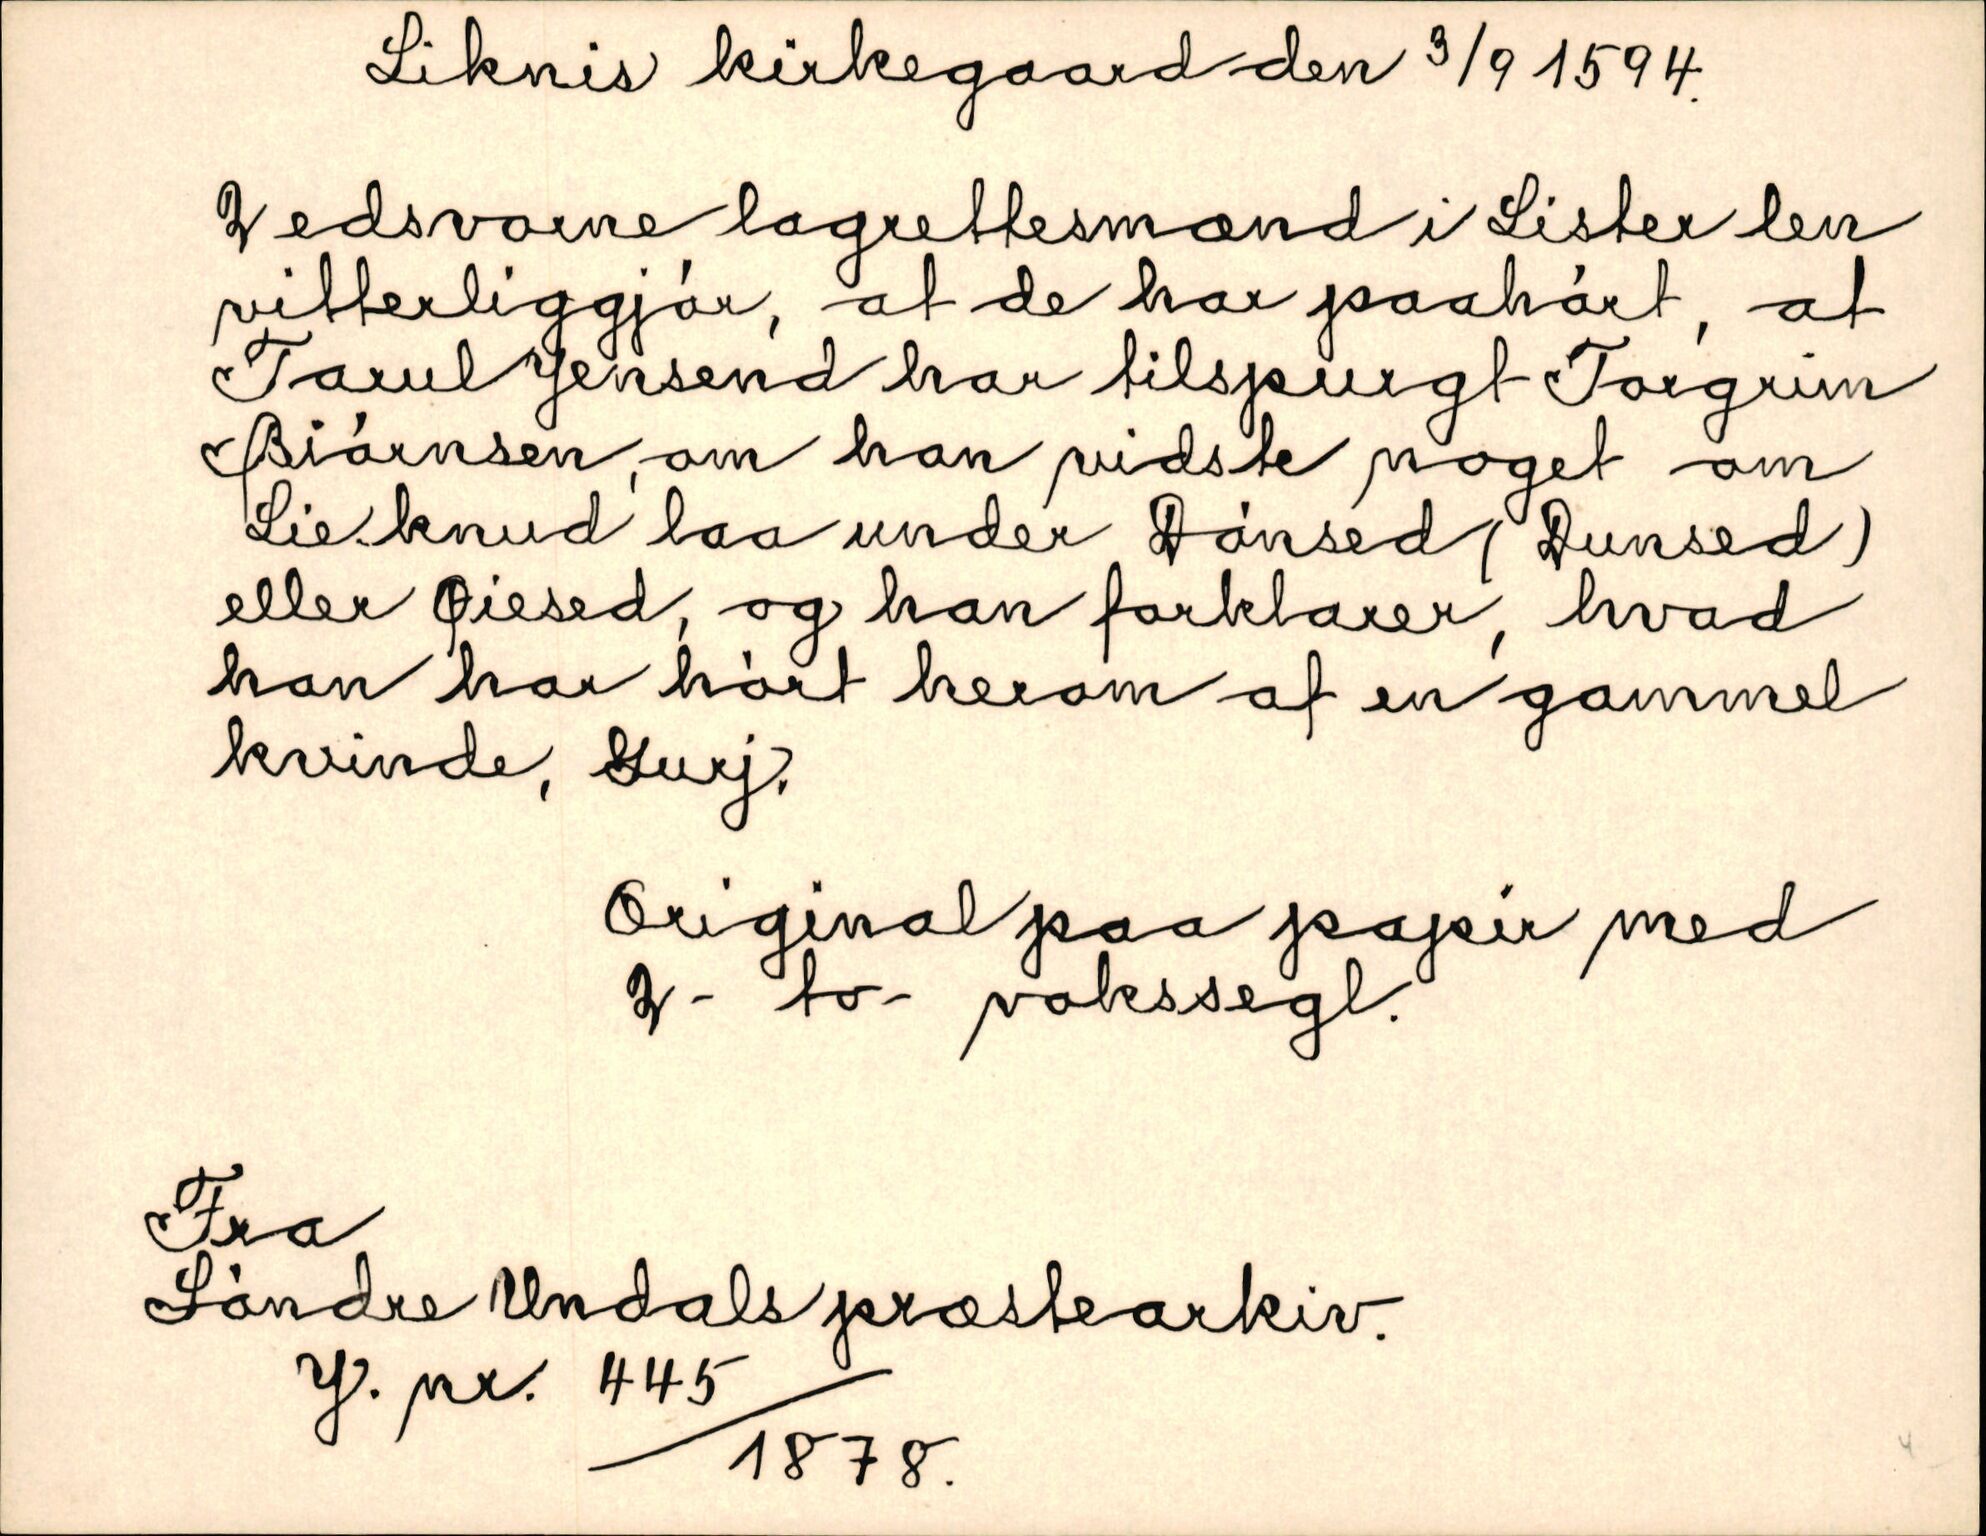 Liknis kirkegaard den 3/9 1594.
2 edsvorne lagrettesmænd i Lister len
vitterliggjór, at de har paahórt, at
Tarul Jensend har tilspurgt Torgrim
Biórnsen, om han vidste noget om
Lie-knud laa under Dónsed (Dunsed)
eller Øiesed, og han forklarer, hvad
han har hórt herom af en gammel
kvinde, Gurj.
Original paa papir med
2 - to - vokssegl.
Fra
Sóndre Undals præstearkiv.
J. nr. 445/1878.
4